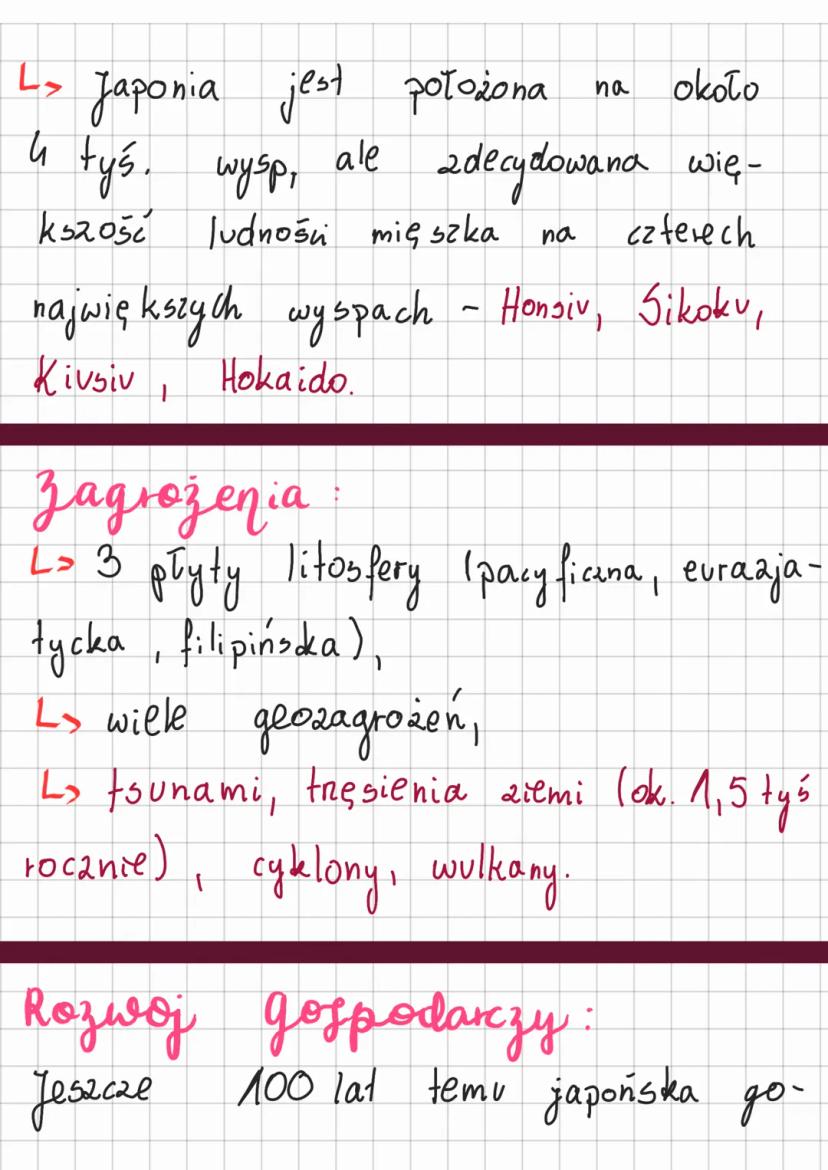 Japonia jest położona na około
4 tyś. wysp, ale zdecydowana wię-
kszość ludności mięszka na czterech
największych wyspach - Honsiu, Sikoku,
Kiusiu, Hokaido.
Zagrożenia:
3 płyty litosfery (pacyficzna, eurazja-
tycka, filipińska),
wiele geozagrożeń,
tsunami, trzęsienia ziemi (ok. 1,5 tyś
rocznie), cyklony, wulkany.
Rozwój gospodarczy:
Jeszcze 100 lat temu japońska go-